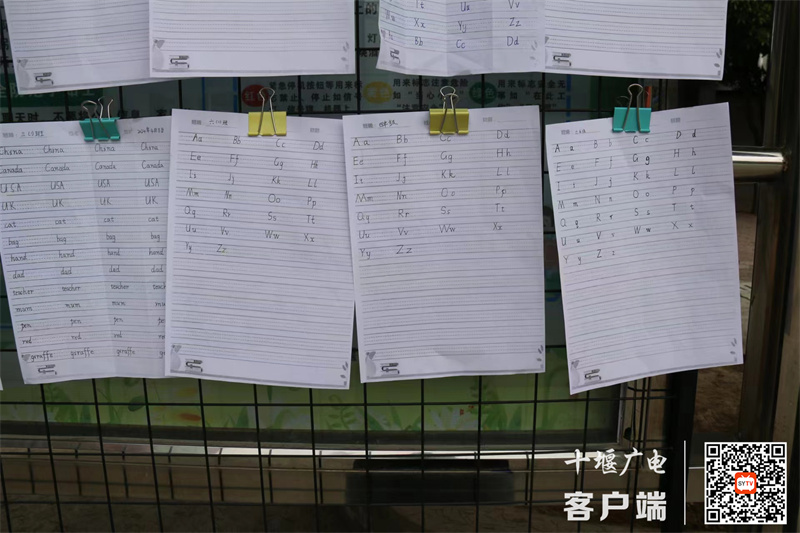 Tt Uu Vv
Xx Yy Zz
Bb Cc Dd
灯
China China China China
Canada Canada Canada Canada
USA USA USA
UK UK UK UK
cat cat cat cat
bag bag bag bag
hand hand hand hand
dad dad dad dad
teacher teacher teacher teacher
mum mum mum mum
pen pen pen pen
red red red red
giraffe giraffe giraffe giraffe
Aa Bb Cc Dd
Ee Ff Gg Hh
Ii Jj Kk Ll
Mm Nn Oo Pp
Qq Rr Ss Tt
Uu Vv Ww Xx
Yy Zz
Aa Bb Cc Dd
Ee Ff Gg Hh
Ii Jj Kk Ll
Mm Nn Oo Pp
Qq Rr Ss Tt
Uu Vv Ww Xx
Yy Zz
Aa Bb Cc Dd
Ee Ff Gg Hh
Ii Jj Kk Ll
Mm Nn Oo Pp
Qq Rr Ss Tt
Uu Vv Ww Xx
Yy Zz
十堰广电
客户端
SYTV